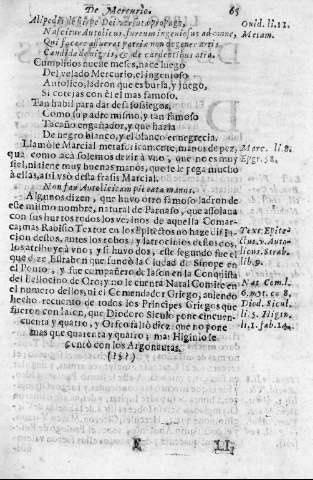 De Mercurio. 65
Alipedis de stirpe Dei versuta propago,
Nascitur Autolicus, furtum ingeniosus ad omne,
Qui facere assueras patriæ non degener artis
Candida de nigris, & de candentibus atra.
Cumplidos nueue meses, nace luego
Del velado Mercurio, el ingenioso
Autolico, ladron que es burla, y juego,
Si cotejas con el el mas famoso.
Tan habil para dar desasosiegos,
Como su padre mismo, y tan famoso
Tacaño engañador, y que hazia
De negro blanco, y el blanco ennegrecia.
Llamòle Marcial metaforicamente, manos de pez,
qua como acà solemos dezir à vno, que no es muy
fiel, ni tiene muy buenas manos, que se le pega mucho
à ellas, assi vsò desta frasis Marcial.
Non fuit Autolici tam piceata manus.
Algunos dizen, que huvo otro famoso ladron de
este mismo nombre, natural de Parnaso, que assolaua
con sus hurtos todos los vezinos de aquella Comar-
ca; mas Rabisio Textor en los Epitectos no haze distin-
cion destos, antes los robos, y latrocinios destos dos,
los atribuye à vno, y si huvo dos, este segundo fue el
que dize Estrabon que fundò la Ciudad de Sinope en
el Ponto, y fue compañero de Iason en la Conquista
del Bellocino de Oro; y no le cuenta Natal Comite en
el numero dellos, ni el Comendador Griego, aujendo
hecho recuento de todos los Principes Griegos que
fueron con Iason, que Diodoro Siculo pone cincuen-
cuenta y quatro, y Orfeo faltò diez que no pone
mas que quarenta y quatro; mas Higinio se
contò con los Argonautas.
(?§?)
Ouid. li. 11.
Metam.
Marc. li. 8.
Epgr. 58.
Text. Epite-
ctus, v. Auto-
licus. Strab.
lib. 9.
Nat. Com. l.
6. not. ce 8.
Diod. Sicul.
li. 5. Higin.
li, 1. fab. 14.
E LI.